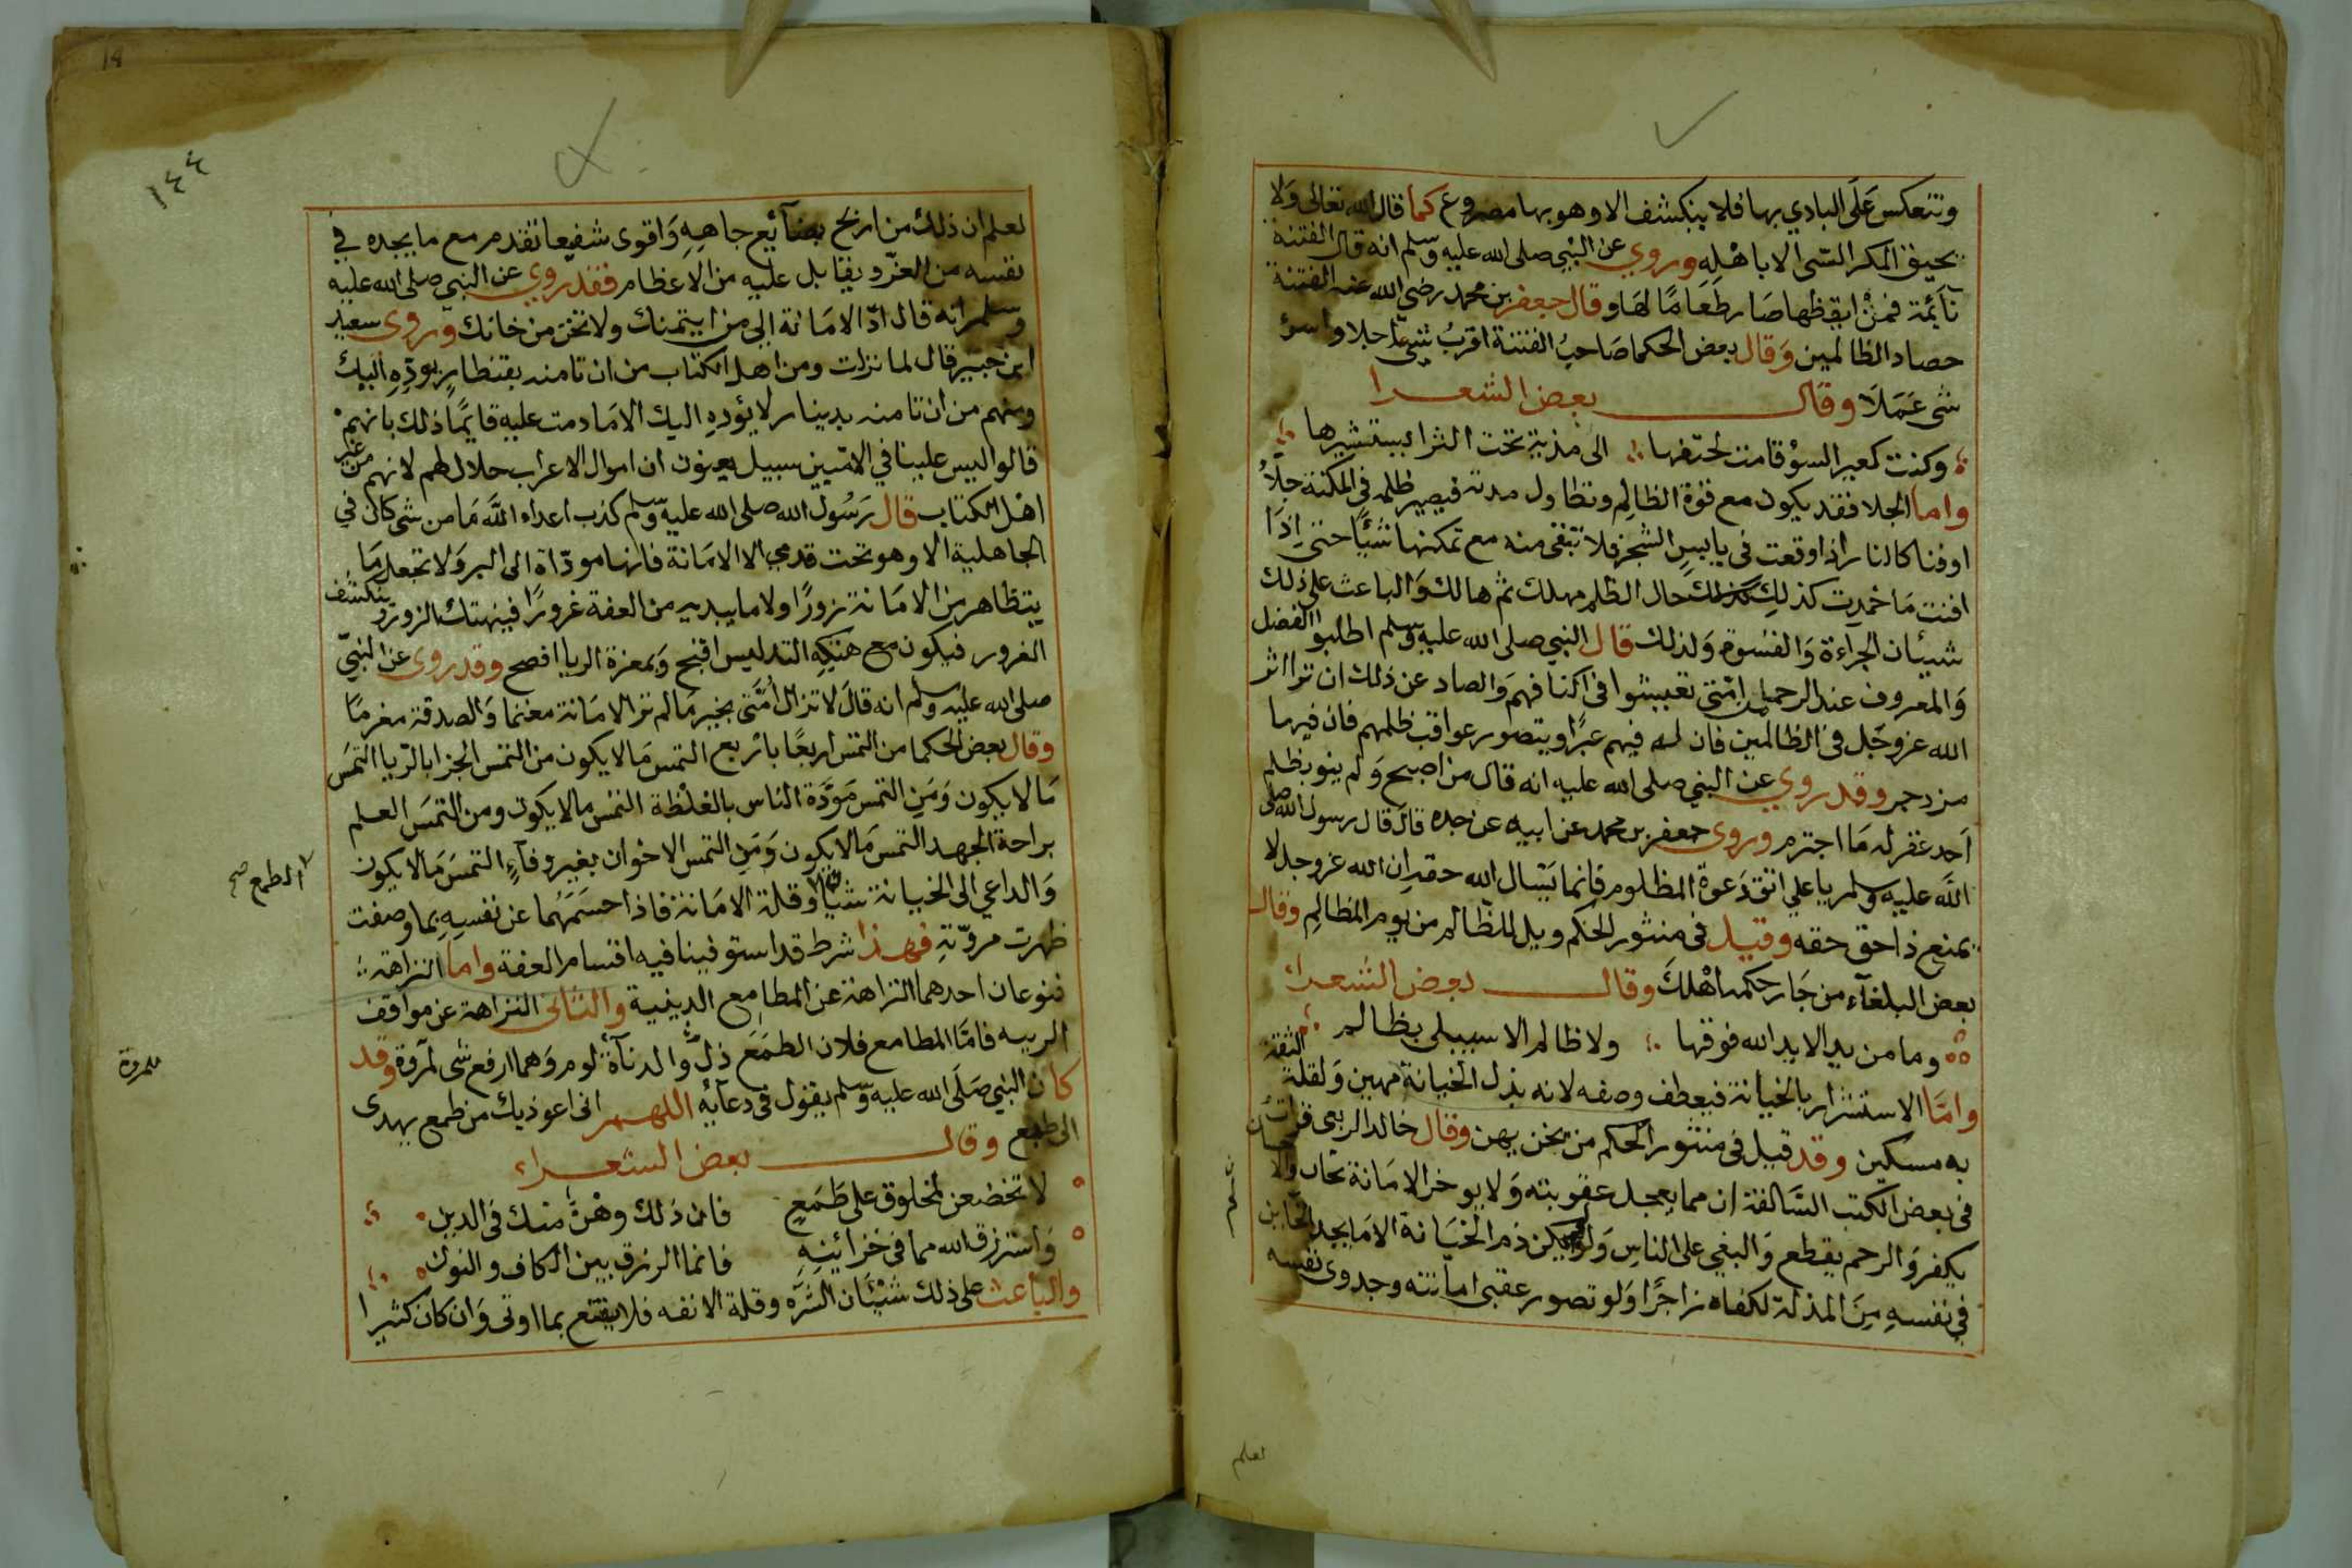 وتنعكس على البادي بها فلا ينكشف الا وهو بها مصروع كما قال الله تعالى ولا
يحيق المكر السيى الا باهله وروي عن النبي صلى الله عليه وسلم انه قال الفتنة
نآئمة فمن ايقظها صار طعاما لها وقال جعفر بن محمد رضي الله عنه الفتنة
حصاد الظالمين وقال بعض الحكما صاحب الفتنة اقرب شيئا اجلا واسوء
شى عملا وقال بعض الشعرا
وكنت كعير السوء قامت لحتفها الى مذية تحت الثرا تستثيرها
واما الجلا فقد يكون مع قوة الظالم وتطاول مدته فيصير ظلمه في المكنة جلاً
او فنا كالنار اذا وقعت في يابس الشجر فلا تبقى منه مع تمكنها شيئا حتى اذا
افنت ما خمدت كذلك حال الظلم مهلك ثم هالك والباعث على ذلك
شيئان الجراءة والقسوة ولذلك قال النبي صلى الله عليه وسلم اطلبوا الفضل
والمعروف عند الرحما من امتي تعيشوا في اكنافهم والصاد عن ذلك ان ترا اثر
الله عز وجل في الظالمين فان له فيهم عبرا ويتصور عواقب ظلمهم فان فيها
مزدجر وقد روي عن النبي صلى الله عليه انه قال من اصبح ولم ينو بظلم
احد غفر له ما اجترم وروى جعفر بن محمد عن ابيه عن جده قال قال رسول الله صلى
الله عليه وسلم يا علي اتق دعوة المظلوم فانما يسال الله حقه ان الله عز وجل لا
يمنع ذا حق حقه وقيل في منثور الحكم ويل للظالم من يوم المظالم وقال
بعض البلغآء من جار حكمه اهلك وقال بعض الشعراء
وما من يد الا يد الله فوقها ولا ظالم الا سيبلى بظالم
واما الاستسرار بالخيانة فيعطف وصفه لانه بذل الخيانة مهين ولقلة الثقة
به مسكين وقد قيل في منثور الحكم من يخن يهن وقال خالد الربعى قرات
في بعض الكتب السالفة ان مما يعجل عقوبته ولا يوخر الامانة تخان والاحسان
يكفر والرحم يقطع والبغي على الناس ولو لم يكن ذم الخيانة الا ما يجد الخاين
في نفسه من المذلة لكفاه زاجرا ولو تصور عقبى امانته وجدوى نفسه
لعلم
١٤٤
لعلم ان ذلك من اربح بضآئع جاهه واقوى شفيعا تقدم مع ما يجده في
نفسه من العز ويقابل عليه من الاعظام فقد روي عن النبي صلى الله عليه
وسلم انه قال ادّ الامانة الى من ايتمنك ولا تخن من خانك وروى سعيد
ابن جبير قال لما نزلت ومن اهل الكتاب من ان تامنه بقنطار يوده اليك
ومنهم من ان تامنه بدينار لا يؤده اليك الا ما دمت عليه قايما ذلك بانهم
قالوا ليس علينا في الاميين سبيل يعنون ان اموال الاعراب حلال لهم لانهم من غير
اهل الكتاب قال رسول الله صلى الله عليه وسلم كذب اعداء الله ما من شى كان في
الجاهلية الا وهو تحت قدمي الا الامانة فانها موداة الى البر ولا تجعل ما
يتظاهر من الامانة زورا ولا ما يبديه من العفة غرورا فينهتك الزور وينكشف
الغرور فيكون مع هتكه التدليس اقبح وبمعرة الريا افصح وقد روي عن النبي
صلى الله عليه وسلم انه قال لا تزال امتى بخير ما لم تر الامانة مغنما والصدقة مغرما
وقال بعض الحكما من التمس اربعا باربع التمس ما لا يكون من التمس الجزا بالريا التمس
ما لا يكون ومن التمس مودة الناس بالغلظة التمس ما لا يكون ومن التمس العلم
براحة الجهد التمس ما لا يكون ومن التمس الاخوان بغير وفآء التمس ما لا يكون
والداعي الى الخيانة شيئان وقلة الامانة فاذا حسمهما عن نفسه بما وصفت
الطمع صح
ظهرت مروته فهذا شرط قد استوفينا فيه اقسام العفة واما النزاهة
فنوعان احدهما النزاهة عن المطامع الدينية والثانى النزاهة عن مواقف
الريبه فاما المطامع فلان الطمع ذل والدنآءة لوم وهما ارفع شى لمروة وقد
للمروة
كان النبي صلى الله عليه وسلم يقول في دعآيه اللهم انى اعوذ بك من طمع يهدى
الى طبع وقال بعض الشعراء
لا تخضعن لمخلوق على طمع فان ذلك وهنٌ منك في الدين
واسترزق الله مما في خزائنه فانما الرزق بين الكاف والنون
والباعث على ذلك شيئان الشره وقلة الانفه فلا يقنع بما اوتى وان كان كثيرا